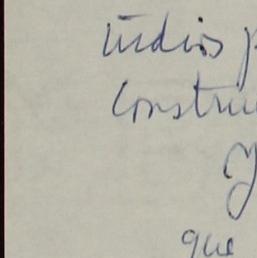 índios p
constru
Y
que